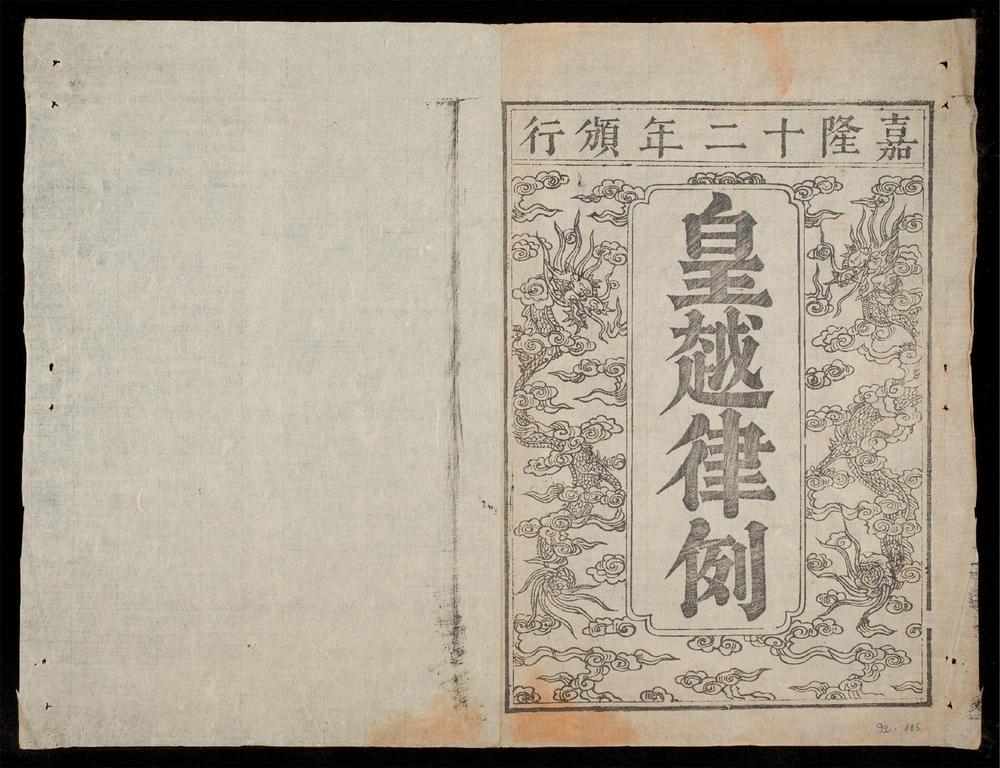 嘉隆十二年頒行
皇越律例
92. 165